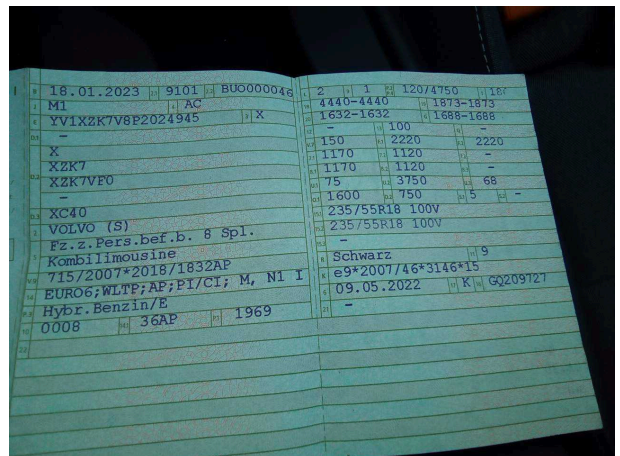 18.01.2023 9101 BUO000046
M1 AC
YV1XZK7V8P2024945 X
-
X
XZK7
XZK7VF0
-
XC40
VOLVO (S)
Fz.z.Pers.bef.b. 8 Spl.
Kombilimousine
715/2007*2018/1832AP
EURO6;WLTP;AP;PI/CI; M, N1 I
Hybr.Benzin/E
0008 36AP 1969
2 1 120/4750
4440-4440 1873-1873
1632-1632 1688-1688
- 100 -
150 2220 2220
1170 1120 -
1170 1120 -
75 3750 68
1600 750 5 -
235/55R18 100V
235/55R18 100V
-
Schwarz 9
e9*2007/46*3146*15
09.05.2022 K GQ209727
-